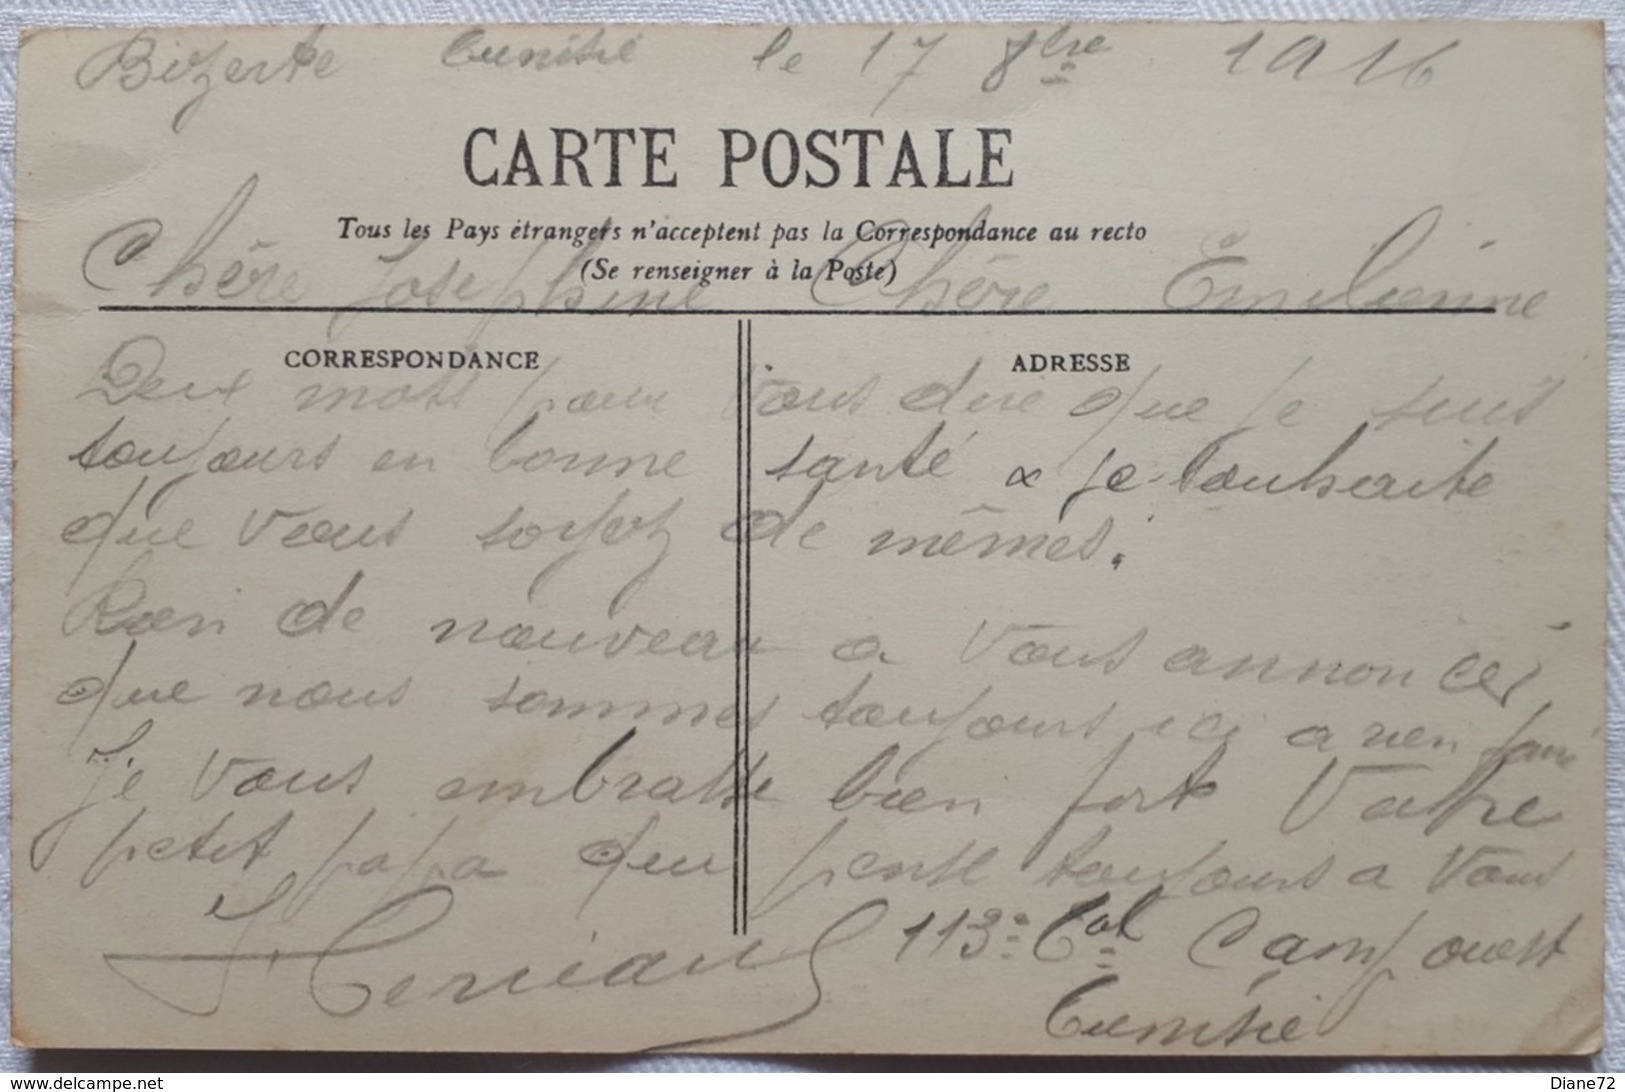 Bizerte Tunisie le 17 8bre 1916
CARTE POSTALE
Tous les Pays étrangers n'acceptent pas la Correspondance au recto
(Se renseigner à la Poste)
Chère Josephine Chère Emilienne
CORRESPONDANCE
ADRESSE
Deux mots pour vous dire que je suis
toujours en bonne santé & je souhaite
que vous soyez de mêmes.
Rien de nouveau a vous annoncer
que nous sommes toujours ici a rien faire
Je vous embrasse bien fort Votre
petit papa qui pense toujours a vous
113e Bat Camp ouest
Tunisie
Diane72